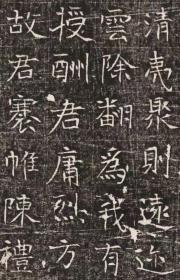 清夷聚則遠迩
雲除翻為我有
授酬君庸烈方
故君褰帷陳禮